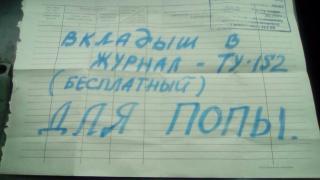 ВКЛАДЫШ В
ЖУРНАЛ - ТУ-152
(БЕСПЛАТНЫЙ)
ДЛЯ ПОПЫ.